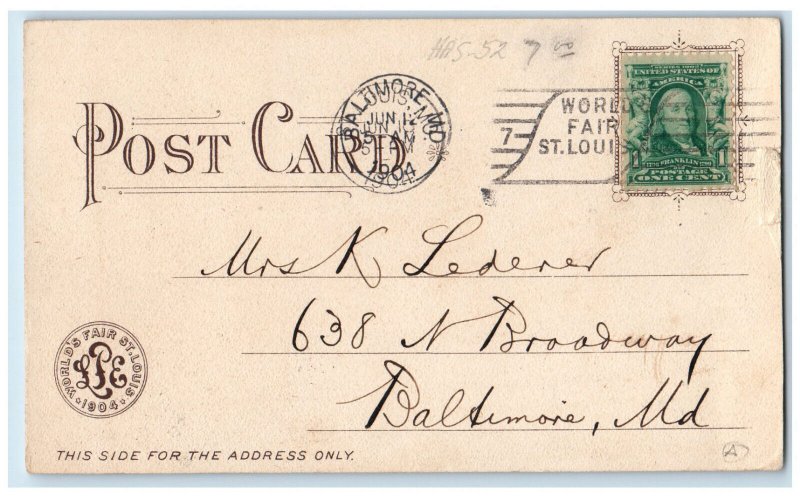 HAS-52 7 00
SERIES 1902
UNITED STATES OF
AMERICA
FRANKLIN
1 POSTAGE 1
ONE CENT
WORLD'S
FAIR
ST. LOUIS
7
BALTIMORE, MD.
JUN 12
5 AM
1904
POST CARD
Mrs K Lederer
638 N Broadway
Baltimore, Md
WORLD'S FAIR ST. LOUIS
LPE
1904
THIS SIDE FOR THE ADDRESS ONLY.
A